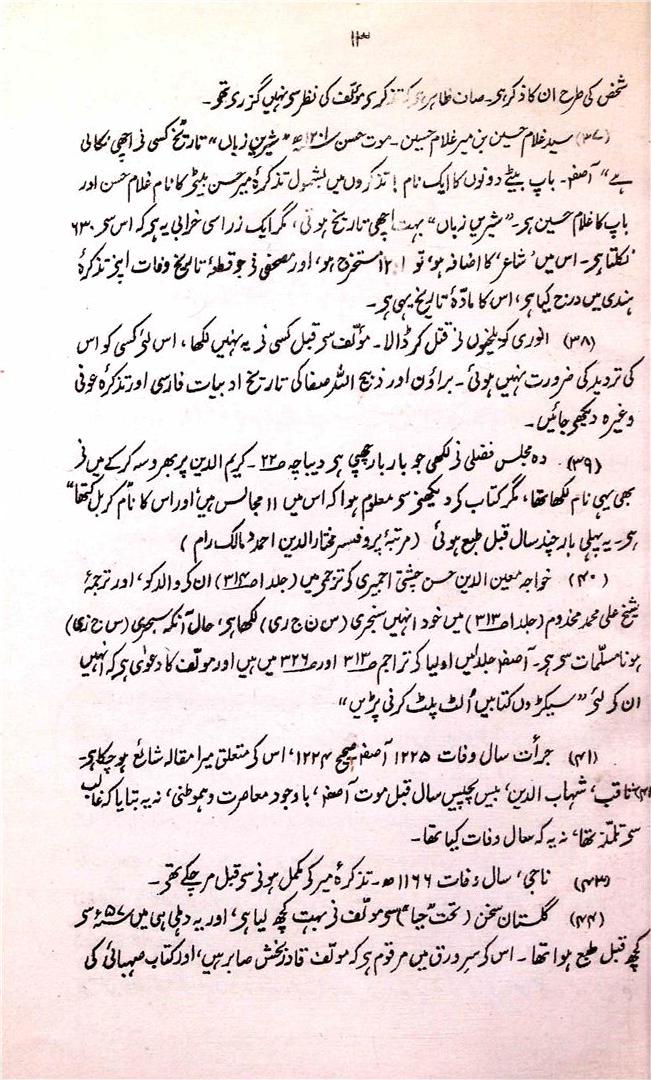 ۱۳
شخص کی طرح ان کا ذکر ہی۔ صاف ظاہر ہی کہ تذکرہ مؤلف کی نظر سی نہیں گزری تھو۔
(۳۷) سید غلام حسین بن میر غلام حسین۔ موت حسن ۱۲۰۱ھ "شیریں زباں" تاریخ کسی نی اچھی نکالی
ہے" آصفہ۔ باپ بیٹے دونوں کا ایک نام! تذکروں میں بشمول تذکرۂ میر حسن بیٹی کا نام غلام حسن اور
باپ کا غلام حسین ہی۔ "شیریں زباں" بہت اچھی تاریخ ہوتی، مگر ایک ذرا سی خرابی یہ ہی کہ اس سی ۶۳۰
نکلتا ہی۔ اس میں 'شاعر' کا اضافہ ہو، تو ۱۲۰۱ مستخرج ہو، اور مصحفی نی جو قطعۂ تاریخ وفات اپنی تذکرۂ
ہندی میں درج کیا ہی، اس کا مادّۂ تاریخ یہی ہی۔
(۳۸) انوری کو بلخیوں نی قتل کر ڈالا۔ مؤلف سی قبل کسی نی یہ نہیں لکھا، اس لئی کسی کو اس
کی تردید کی ضرورت نہیں ہوئی۔ براؤن اور ذبیح اللہ صفا کی تاریخ ادبیات فارسی اور تذکرۂ عوفی
وغیرہ دیکھی جائیں۔
(۳۹) دہ مجلس فضلی نی لکھی جو بار بار چھپی ہی دیباچہ ص۲۲۔ کریم الدین پر بھروسہ کرکے میں نی
بھی یہی نام لکھا تھا، مگر کتاب کی دیکھنی سی معلوم ہوا کہ اس میں ۱۱ مجالس ہیں اور اس کا نام کربل کتھا"
ہی۔ یہ پہلی بار چند سال قبل طبع ہوئی (مرتبۂ پروفیسر مختار الدین احمد و مالک رام)
(۴۰) خواجہ معین الدین حسن چشتی اجمیری کی ترجمی میں (جلد ا ص۳۱۴) ان کی والد کو، اور ترجمۂ
شیخ علی محمد مخدوم (جلد ا ص۳۱۳) میں خود انہیں سنجری (س ن ج ری) لکھا ہی، حال آنکہ سجزی (س ج زی)
ہونا مسلّمات سی ہی۔ آصفہ جلد ا میں اولیا کی تراجم ص۳۱۳ اور ص۳۲۶ میں ہیں اور مولف کا دعویٰ ہی کہ انہیں
ان کی لئی "سیکڑوں کتابیں اُلٹ پلٹ کرنی پڑیں"
(۴۱) جرأت سال وفات ۱۲۲۵ آصفہ صحیح ۱۲۲۴، اس کی متعلق میرا مقالہ شائع ہو چکا ہی۔
ثاقب، شہاب الدین، بیس پچیس سال قبل موت آصفہ، باوجود معاصرت و ہموطنی، نہ یہ بتایا کہ غالب
سی تلمّذ تھا، نہ یہ کہ سال وفات کیا تھا۔
(۴۳) ناجی، سال وفات ۱۱۶۶ھ۔ تذکرۂ میر کی مکمل ہونی سی قبل مر چکے تھی۔
(۴۴) گلستان سخن (تحت حیا) سی مولف نی بہت کچھ لیا ہی، اور یہ دہلی ہی میں ۵۷ء سی
کچھ قبل طبع ہوا تھا۔ اس کی سرورق میں مرقوم ہی کہ مولف قادر بخش صابر ہیں، اور کتاب صہبائی کی